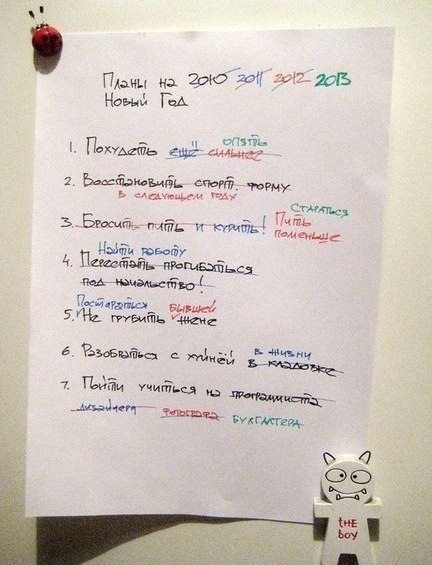 Планы на 2010 2011 2012 2013
Новый Год
опять
1. Похудеть ещё сильнее
2. Восстановить спорт. форму
в следующем году
Стараться
3. Бросить пить и курить! Пить
поменьше
Найти работу
4. Перестать прогибаться
под начальство!
Постараться бывшей
5. Не грубить жене
6. Разобраться с хуйнёй в жизни
в кладовке
7. Пойти учиться на программиста
дизайнера фотографа бухгалтера
the
boy